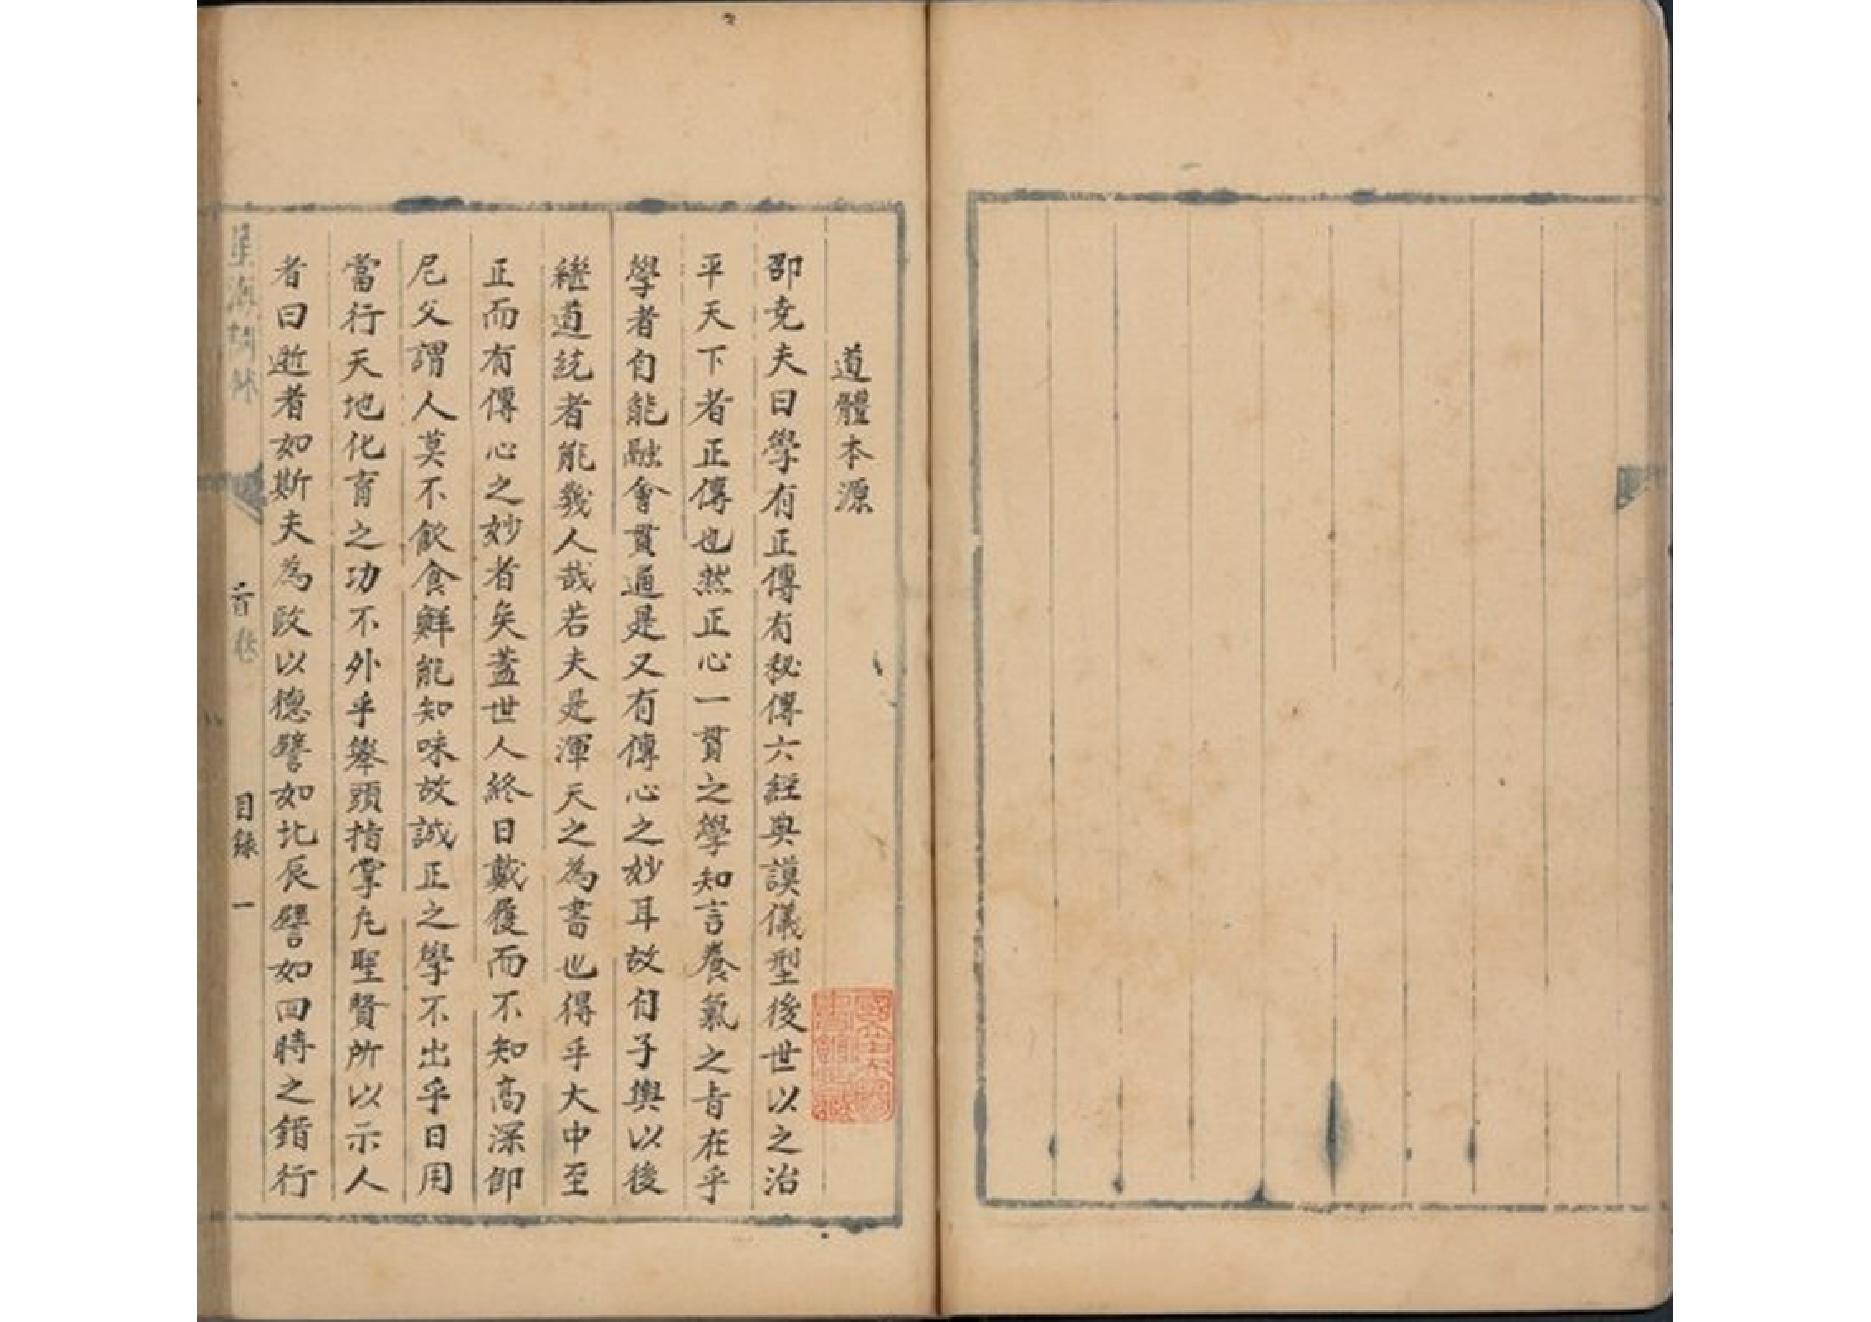 道體本源
邵堯夫曰學有正傳有秘傳六經典謨儀型後世以之治
平天下者正傳也然正心一貫之學知言養氣之旨在乎
學者自能融會貫通是又有傳心之妙耳故自子輿以後
繼道統者能幾人哉若夫是渾天之為書也得乎大中至
正而有傳心之妙者矣蓋世人終日戴履而不知高深仰
尼父謂人莫不飲食鮮能知味故誠正之學不出乎日用
當行天地化育之功不外乎舉頭指掌凡聖賢所以示人
者曰逝者如斯夫為政以德譬如北辰譬如四時之錯行
首卷
目錄 一